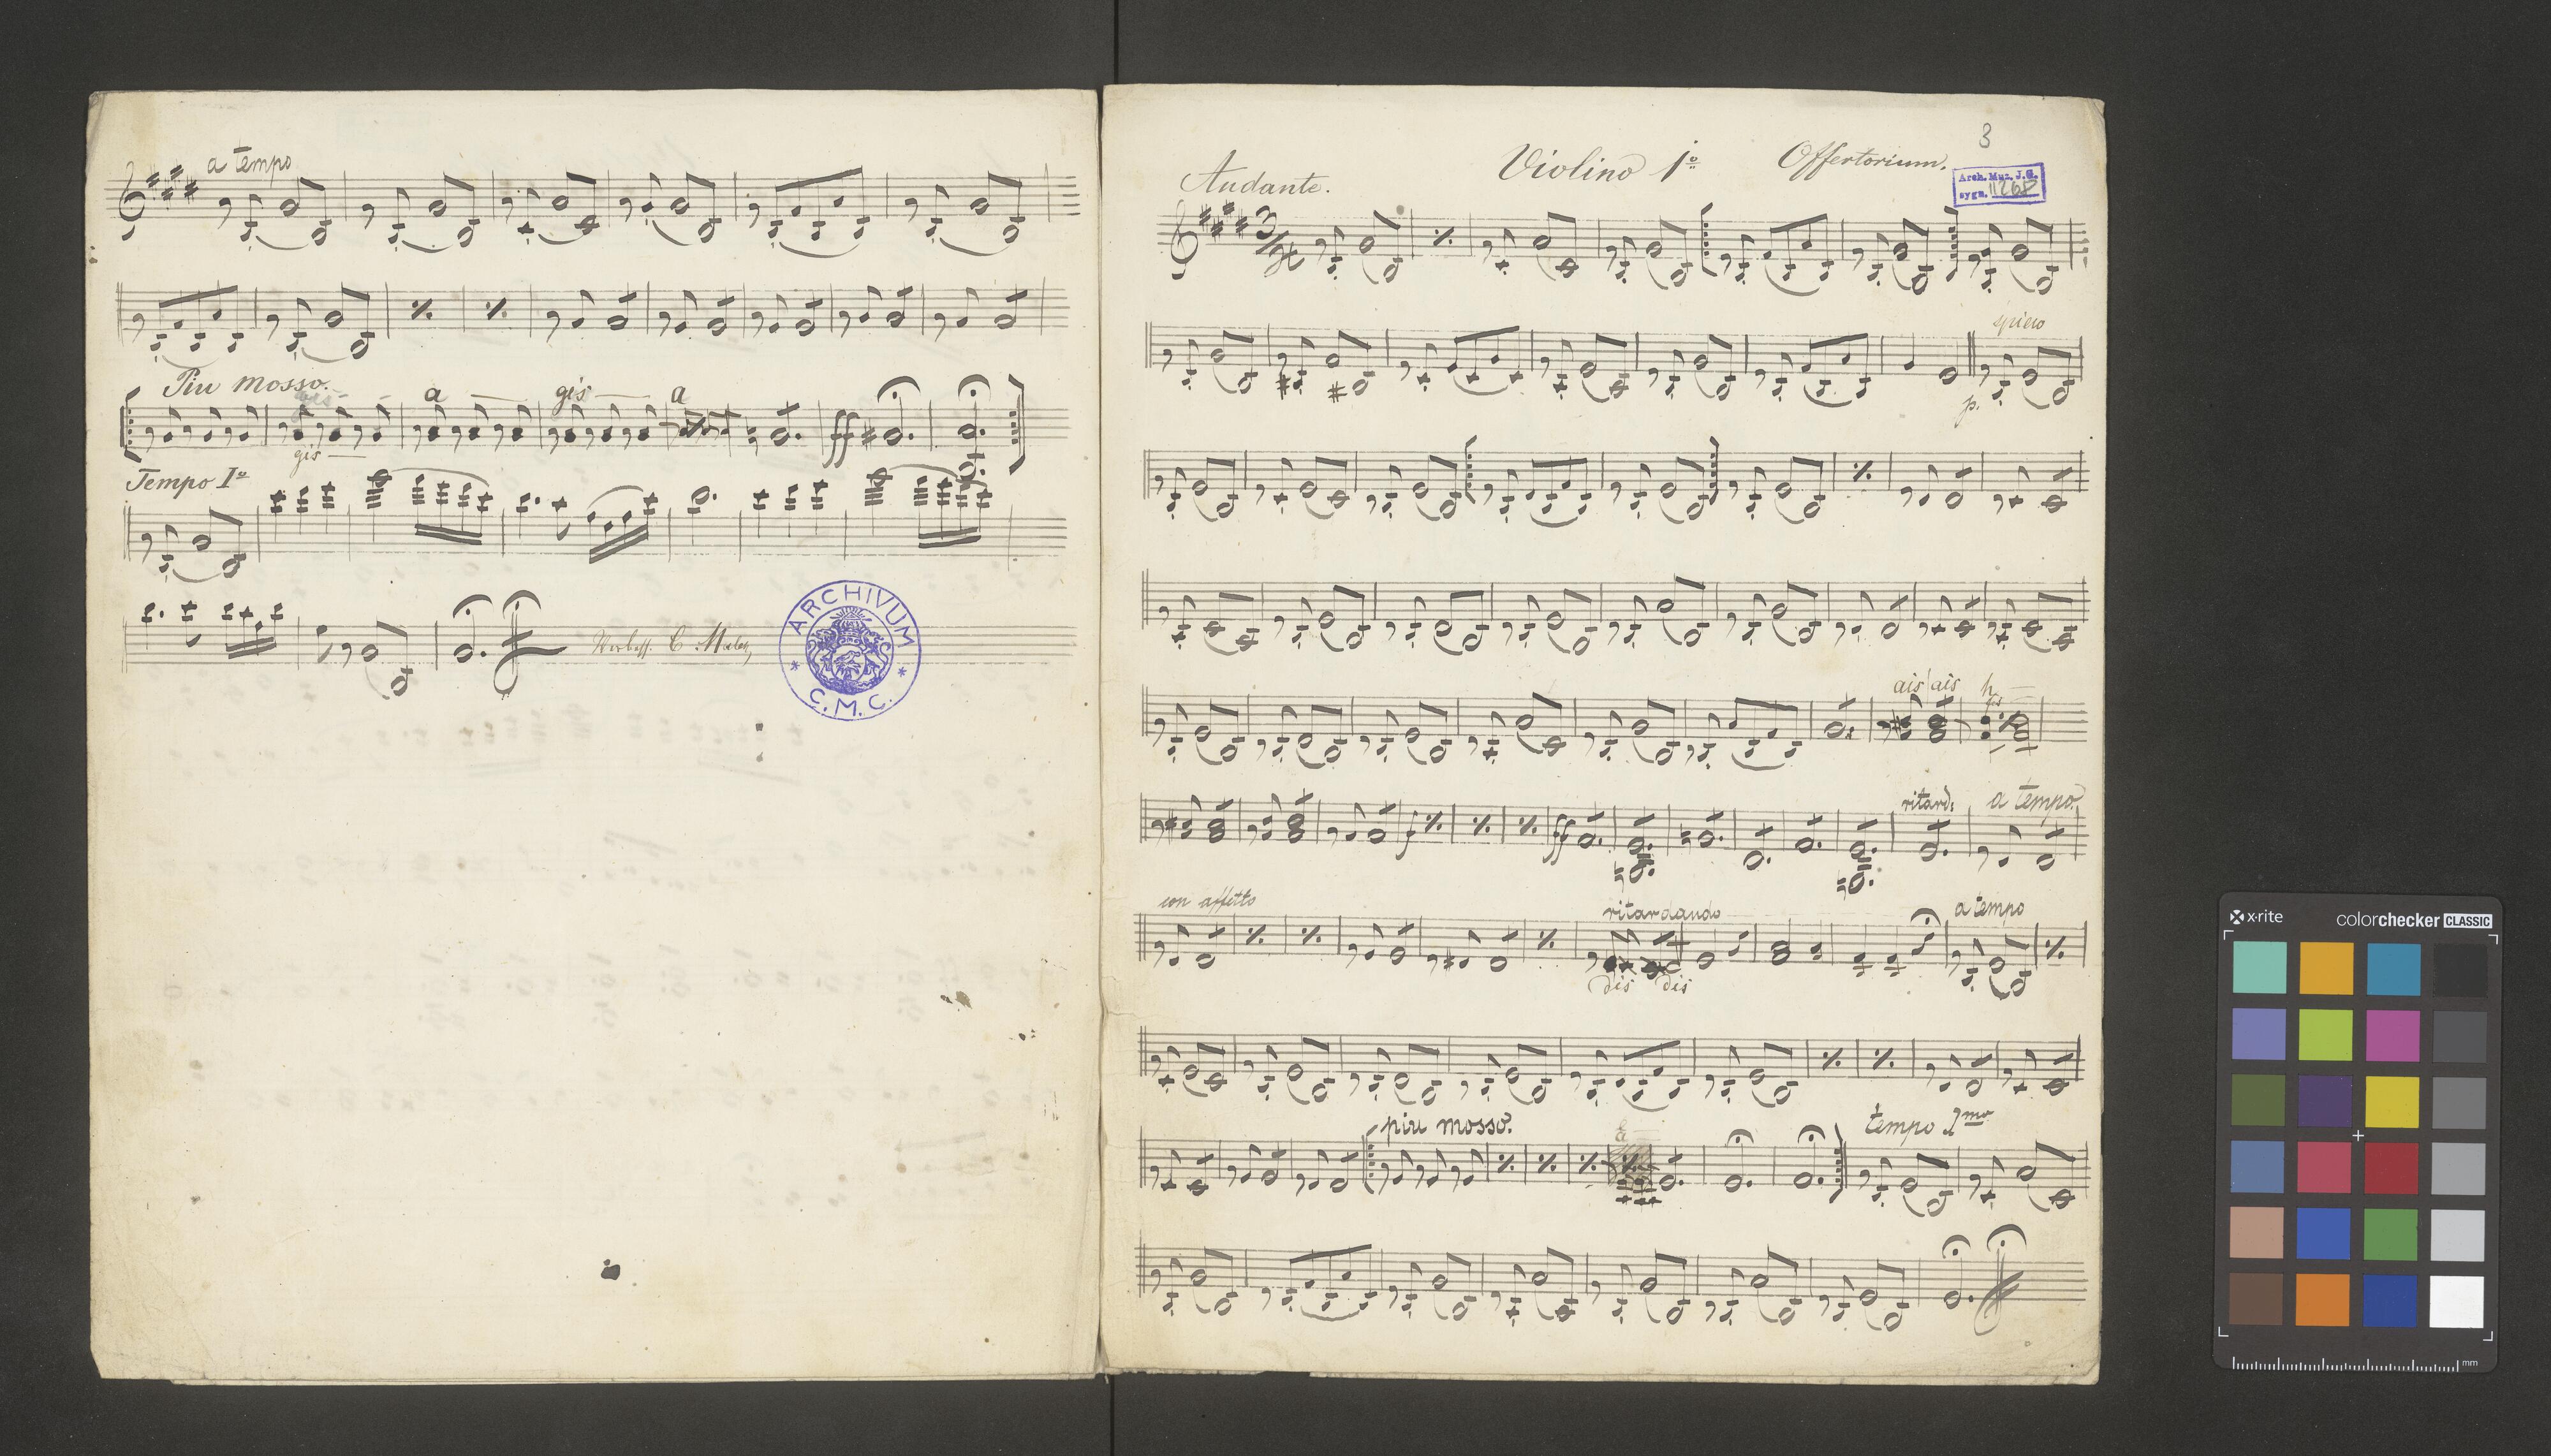 a tempo
Piu mosso.
a gis a
gis
ff
Tempo Iº
C.
ARCHIVUM
C.M.C.
3
Violino 1º Offertorium.
Andante.
Arch. Muz. J.G.
sygn. 1126P
3/4
p.
ais ais h
ritard: a tempo.
f ff
con affetto ritardando a tempo
dis dis
piu mosso. tempo Imo
x-rite colorchecker CLASSIC
mm